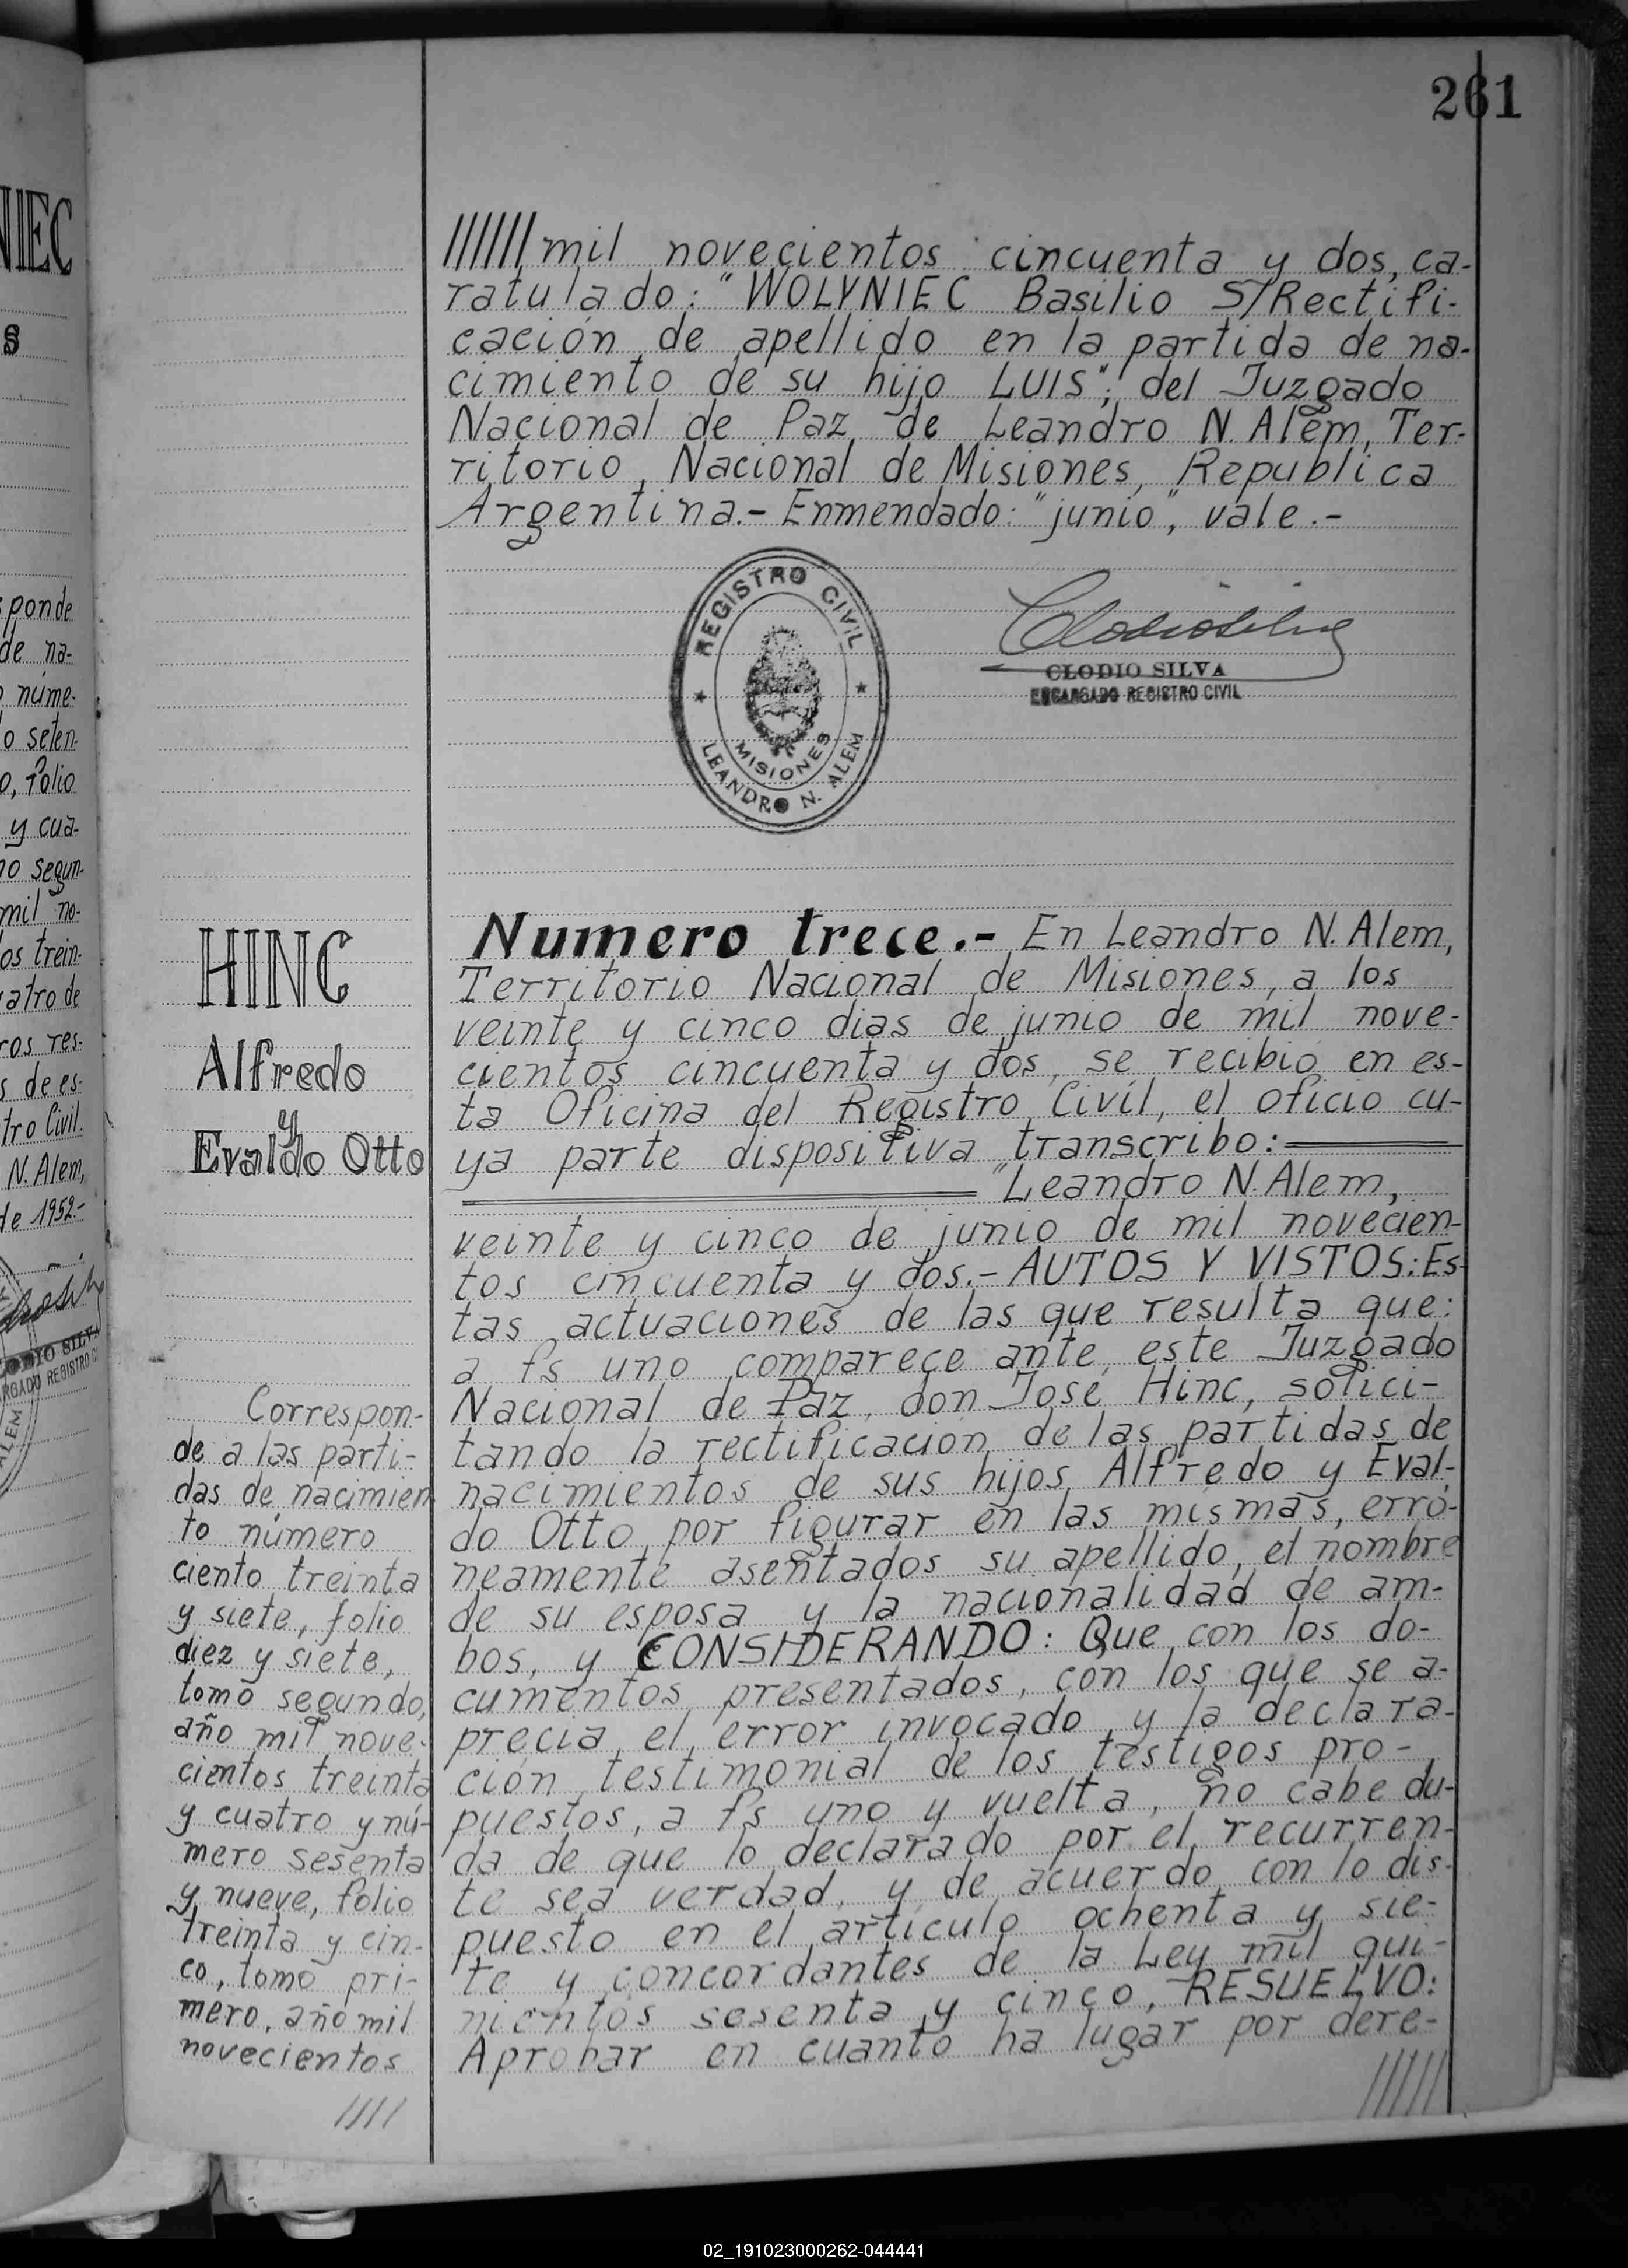 261
NIEC
s
sponde
de na-
núme-
o seten-
o, folio
y cua-
no segun-
mil no-
os trein-
uatro de
ros res-
s de es-
tro Civil.
N. Alem,
de 1952.-
ODIO SILVA
ARGADO REGISTRO CI
ALEM
////// mil novecientos cincuenta y dos, ca-
ratulado: "WOLYNIEC Basilio S/Rectifi-
cación de apellido en la partida de na-
cimiento de su hijo LUIS"; del Juzgado
Nacional de Paz de Leandro N. Alem, Ter-
ritorio Nacional de Misiones, Republica
Argentina.- Enmendado: "junio", vale.-
REGISTRO CIVIL
MISIONES
LEANDRO N. ALEM
CLODIO SILVA
ENCARGADO REGISTRO CIVIL
HINC
Alfredo
y
Evaldo Otto
Correspon-
de a las parti-
das de nacimien
to número
ciento treinta
y siete, folio
diez y siete,
tomo segundo,
año mil nove-
cientos treinta
y cuatro y nú-
mero sesenta
y nueve, folio
treinta y cin-
co, tomo pri-
mero, año mil
novecientos
////
Numero trece.- En Leandro N. Alem,
Territorio Nacional de Misiones, a los
veinte y cinco dias de junio de mil nove-
cientos cincuenta y dos, se recibió en es-
ta Oficina del Registro Civil, el oficio cu-
ya parte dispositiva transcribo:
"Leandro N. Alem,
veinte y cinco de junio de mil novecien-
tos cincuenta y dos.- AUTOS Y VISTOS: Es-
tas actuaciones de las que resulta que:
a fs uno comparece ante este Juzgado
Nacional de Paz, don José Hinc, solici-
tando la rectificacion de las partidas de
nacimientos de sus hijos Alfredo y Eval-
do Otto por figurar en las mismas, erró-
neamente asentados su apellido, el nombre
de su esposa y la nacionalidad de am-
bos, y CONSIDERANDO: Que con los do-
cumentos presentados, con los que se a-
precia el error invocado y la declara-
ción testimonial de los testigos pro-
puestos, a fs uno y vuelta, no cabe du-
da de que lo declarado por el recurren-
te sea verdad, y de acuerdo con lo dis-
puesto en el artículo ochenta y sie-
te y concordantes de la Ley mil qui-
nientos sesenta y cinco, RESUELVO:
Aprobar en cuanto ha lugar por dere-
//////
02_191023000262-044441